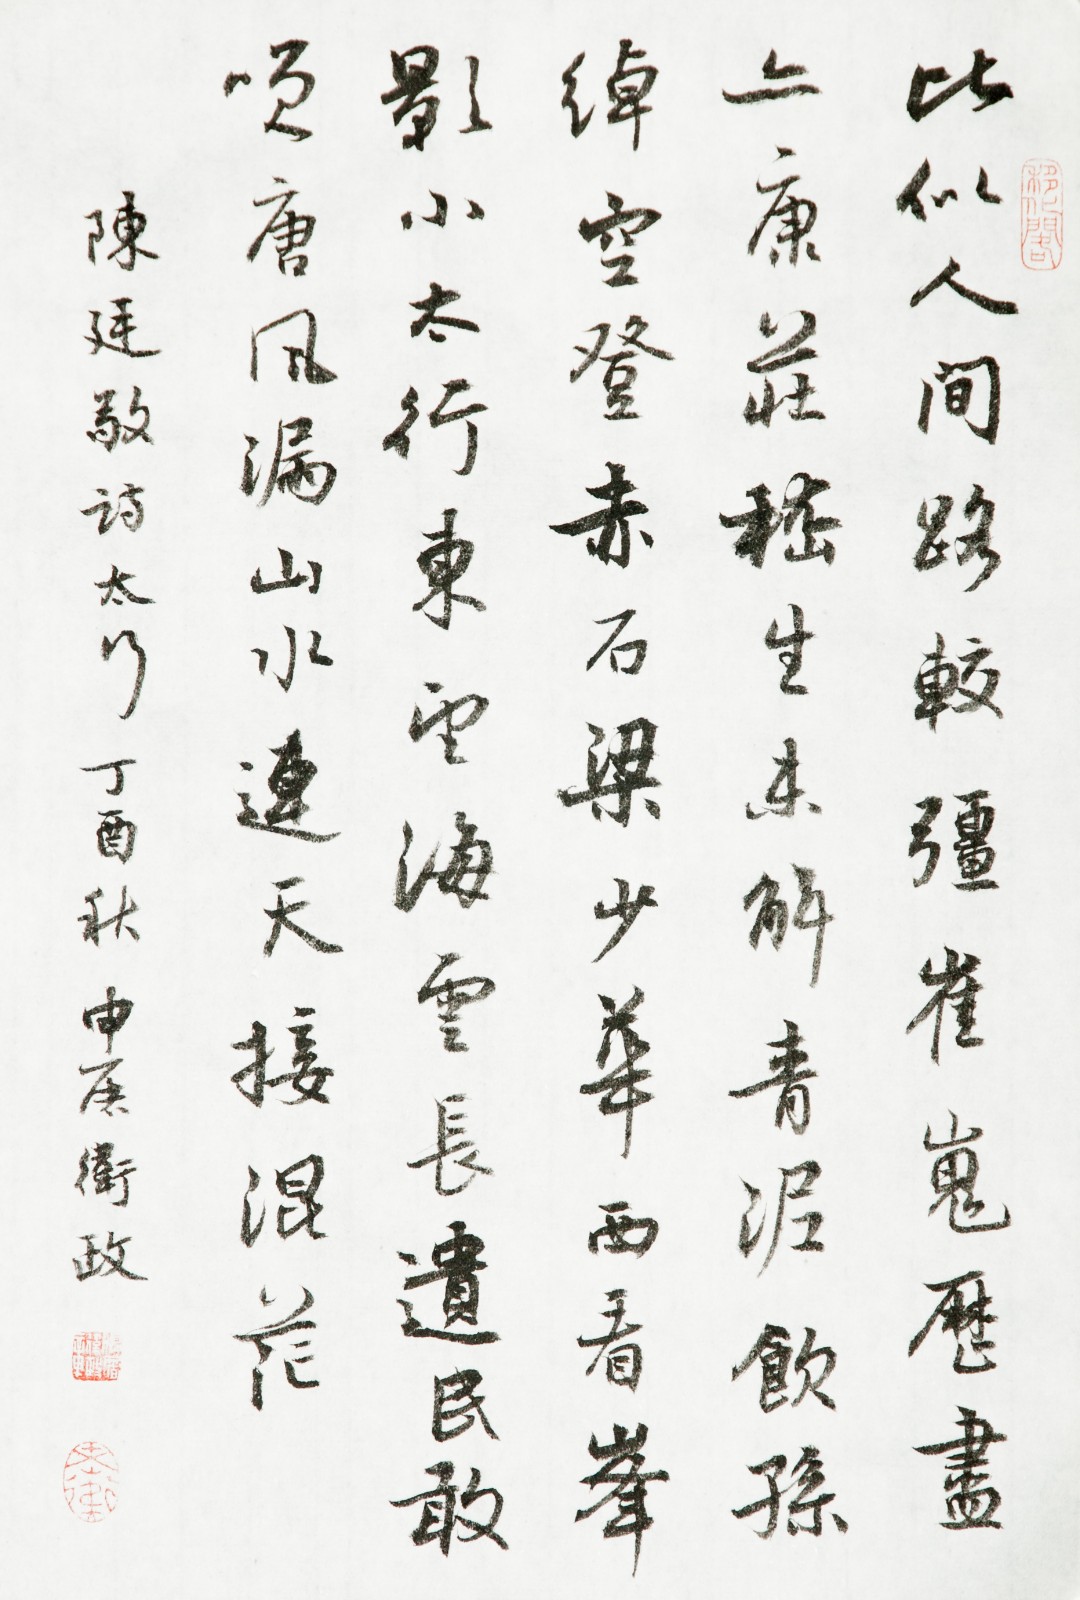 比似人間路較彊崔嵬歷盡
亦康莊嵇生未解青泥飲孫
綽空登赤石梁少華西看峯
影小太行東望海雲長遺民敢
唄唐風漏山水連天接混茫
陳廷敬詩太行 丁酉秋 申居衛政